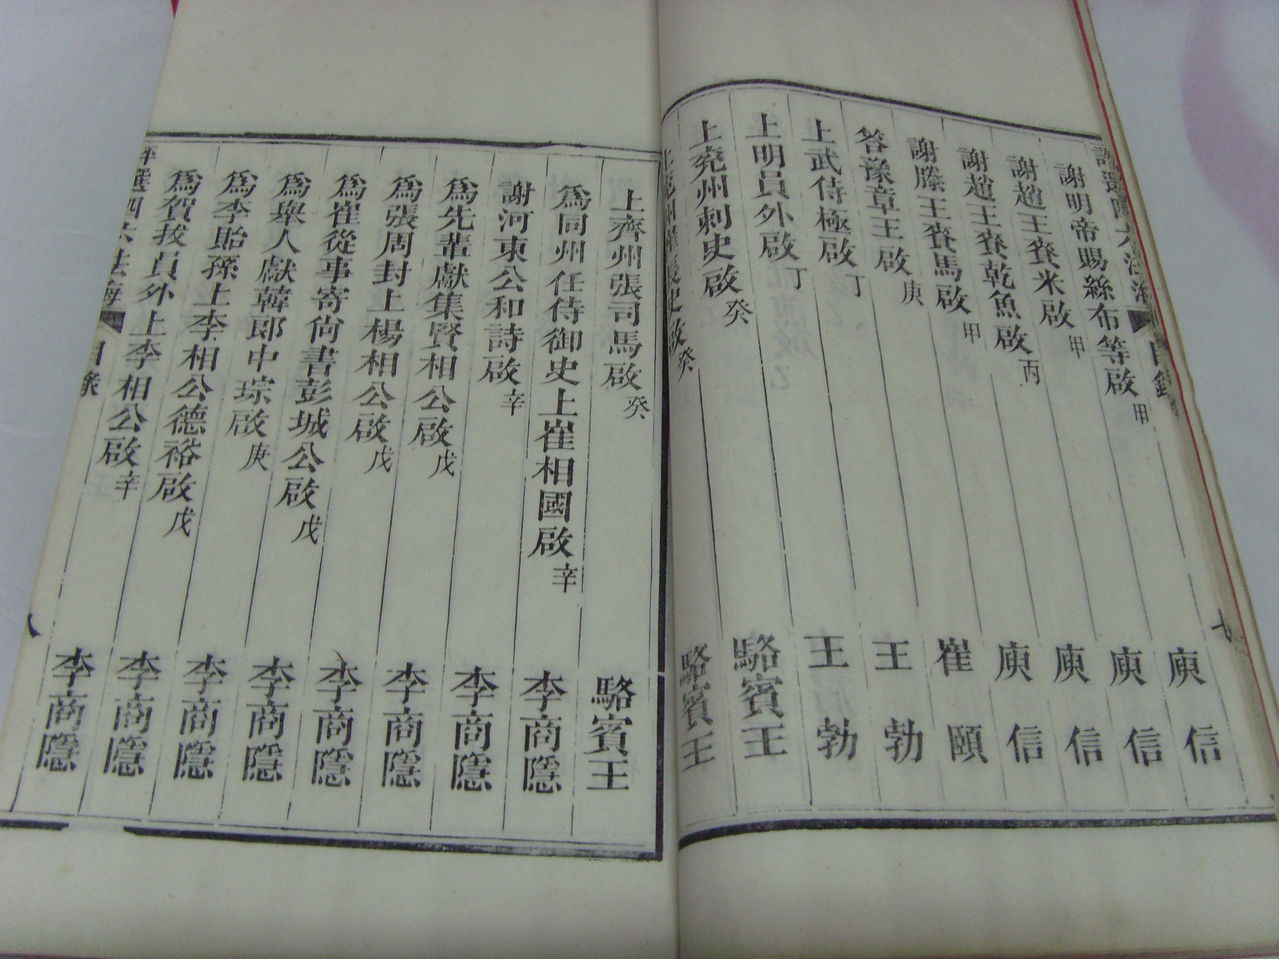 評選四六法海 目錄 七
謝明帝賜絲布等啟 甲 庾信
謝趙王賚米啟 甲 庾信
謝趙王賚乾魚啟 丙 庾信
謝滕王賚馬啟 甲 庾信
答豫章王啟 庚 崔頤
上武侍極啟 丁 王勃
上明員外啟 丁 王勃
上兗州刺史啟 癸 駱賓王
上兗州崔長史啟 癸 駱賓王
上齊州張司馬啟 癸 駱賓王
為同州任侍御史上崔相國啟 辛 李商隱
謝河東公和詩啟 辛 李商隱
為先輩獻集賢相公啟 戊 李商隱
為張周封上楊相公啟 戊 李商隱
為崔從事寄尚書彭城公啟 戊 李商隱
為舉人獻韓郎中琮啟 庚 李商隱
為李貽孫上李相公德裕啟 戊 李商隱
為賀拔員外上李相公啟 辛 李商隱
評選四六法海 目錄 八